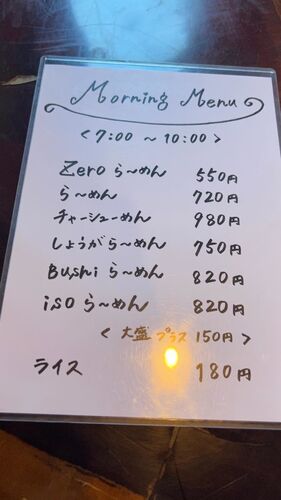 Morning Menu
< 7:00 ~ 10:00 >
Zero ら〜めん 550円
ら〜めん 720円
チャーシューめん 980円
しょうがら〜めん 750円
Bushi ら〜めん 820円
iso ら〜めん 820円
< 大盛 プラス 150円 >
ライス 180円